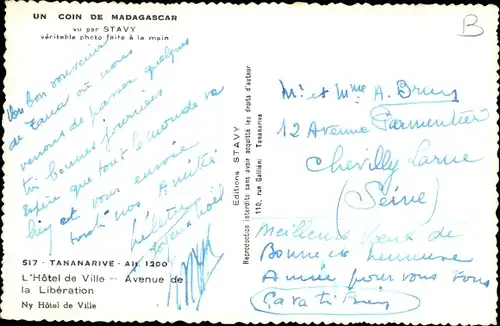 UN COIN DE MADAGASCAR
vu par STAVY
véritable photo faite à la main
B
Un bon souvenir
de Tana où nous
venons de passer quelques
bonnes journées
Espère que tout le monde va
bien et vous envoie
toutes nos Amitiés
Joyeux Noël
517 - TANANARIVE - Alt. 1200
L'Hôtel de Ville - Avenue de
la Libération
Ny Hôtel de Ville
Editions STAVY
110, rue Galliéni Tananarive
Reproduction interdite sans avoir acquitté les droits d'auteur
Mr et Mme A.
12 Avenue Parmentier
Chevilly Larue
(Seine)
Meilleurs Vœux de
Bonne et heureuse
Année pour vous Tous
Ça va très bien